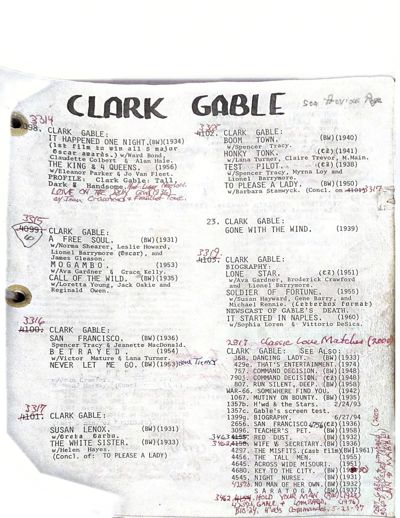 CLARK GABLE
see Previous Page
3314
CLARK GABLE:
IT HAPPENED ONE NIGHT.(BW)(1934)
(1st film to win all 5 major
Oscar awards.) w/Ward Bond,
Claudette Colbert & Alan Hale.
THE KING & 4 QUEENS. (1956)
w/Eleanor Parker & Jo Van Fleet.
PROFILE: Clark Gable: Tall,
Dark & Handsome.
LOVE ON THE RUN
w/Joan Crawford & Franchot Tone.
3315
4099.
CLARK GABLE:
A FREE SOUL. (BW)(1931)
w/Norma Shearer, Leslie Howard,
Lionel Barrymore (Oscar), and
James Gleason.
MOGAMBO. (1953)
w/Ava Gardner & Grace Kelly.
CALL OF THE WILD. (BW)(1935)
w/Loretta Young, Jack Oakie and
Reginald Owen.
3316
4100. CLARK GABLE:
SAN FRANCISCO. (BW)(1936)
Spencer Tracy & Jeanette MacDonald.
BETRAYED. (1954)
w/Victor Mature & Lana Turner.
NEVER LET ME GO. (BW)(1953) Gene Tierney
3317
4101. CLARK GABLE:
SUSAN LENOX. (BW)(1931)
w/Greta Garbo.
THE WHITE SISTER. (BW)(1933)
w/Helen Hayes.
(Concl. of: TO PLEASE A LADY)
4102. CLARK GABLE:
BOOM TOWN. (BW)(1940)
w/Spencer Tracy.
HONKY TONK. (BW)(1941)
w/Lana Turner, Claire Trevor, M.Main.
TEST PILOT. (CZ)(1938)
w/Spencer Tracy, Myrna Loy and
Lionel Barrymore.
TO PLEASE A LADY. (BW)(1950)
w/Barbara Stanwyck. (Concl. on 4101) 3317
23. CLARK GABLE:
GONE WITH THE WIND. (1939)
3319
4103. CLARK GABLE:
BIOGRAPHY.
LONE STAR. (CZ)(1951)
w/Ava Gardner, Broderick Crawford
and Lionel Barrymore.
SOLDIER OF FORTUNE. (1955)
w/Susan Hayward, Gene Barry, and
Michael Rennie. (Letterbox format)
NEWSCAST OF GABLE'S DEATH.
IT STARTED IN NAPLES. (1960)
w/Sophia Loren & Vittorio DeSica.
Classic Love Matches (2000)
CLARK GABLE: See Also:
368. DANCING LADY. (BW)(1933)
429e. THAT'S ENTERTAINMENT.
757. COMMAND DECISION. (BW)(1948)
790j. COMMAND DECISION. (CZ)(1948)
807. RUN SILENT, DEEP. (BW)(1958)
WAR-66. SOMEWHERE FIND YOU. (1942)
1067. MUTINY ON BOUNTY. (BW)(1935)
1357b. H'wd & the Stars. 2/24/93
1357c. Gable's screen test.
1399g. BIOGRAPHY. 6/27/94
2656. SAN FRANCISCO (BW)(1936)
3096. TEACHER'S PET. (BW)(1958)
RED DUST. (BW)(1932)
WIFE & SECRETARY. (BW)(1936)
4297. THE MISFITS.(Cash film)(BW)(1961)
4456. THE TALL MEN. (1955)
4645. ACROSS WIDE MISOURI. (1951)
4680. KEY TO THE CITY. (BW)(1950)
4545. NIGHT NURSE. (BW)(1931)
NO MAN OF HER OWN. (BW)(1932)
HOLD YOUR MAN (BW)(1933)